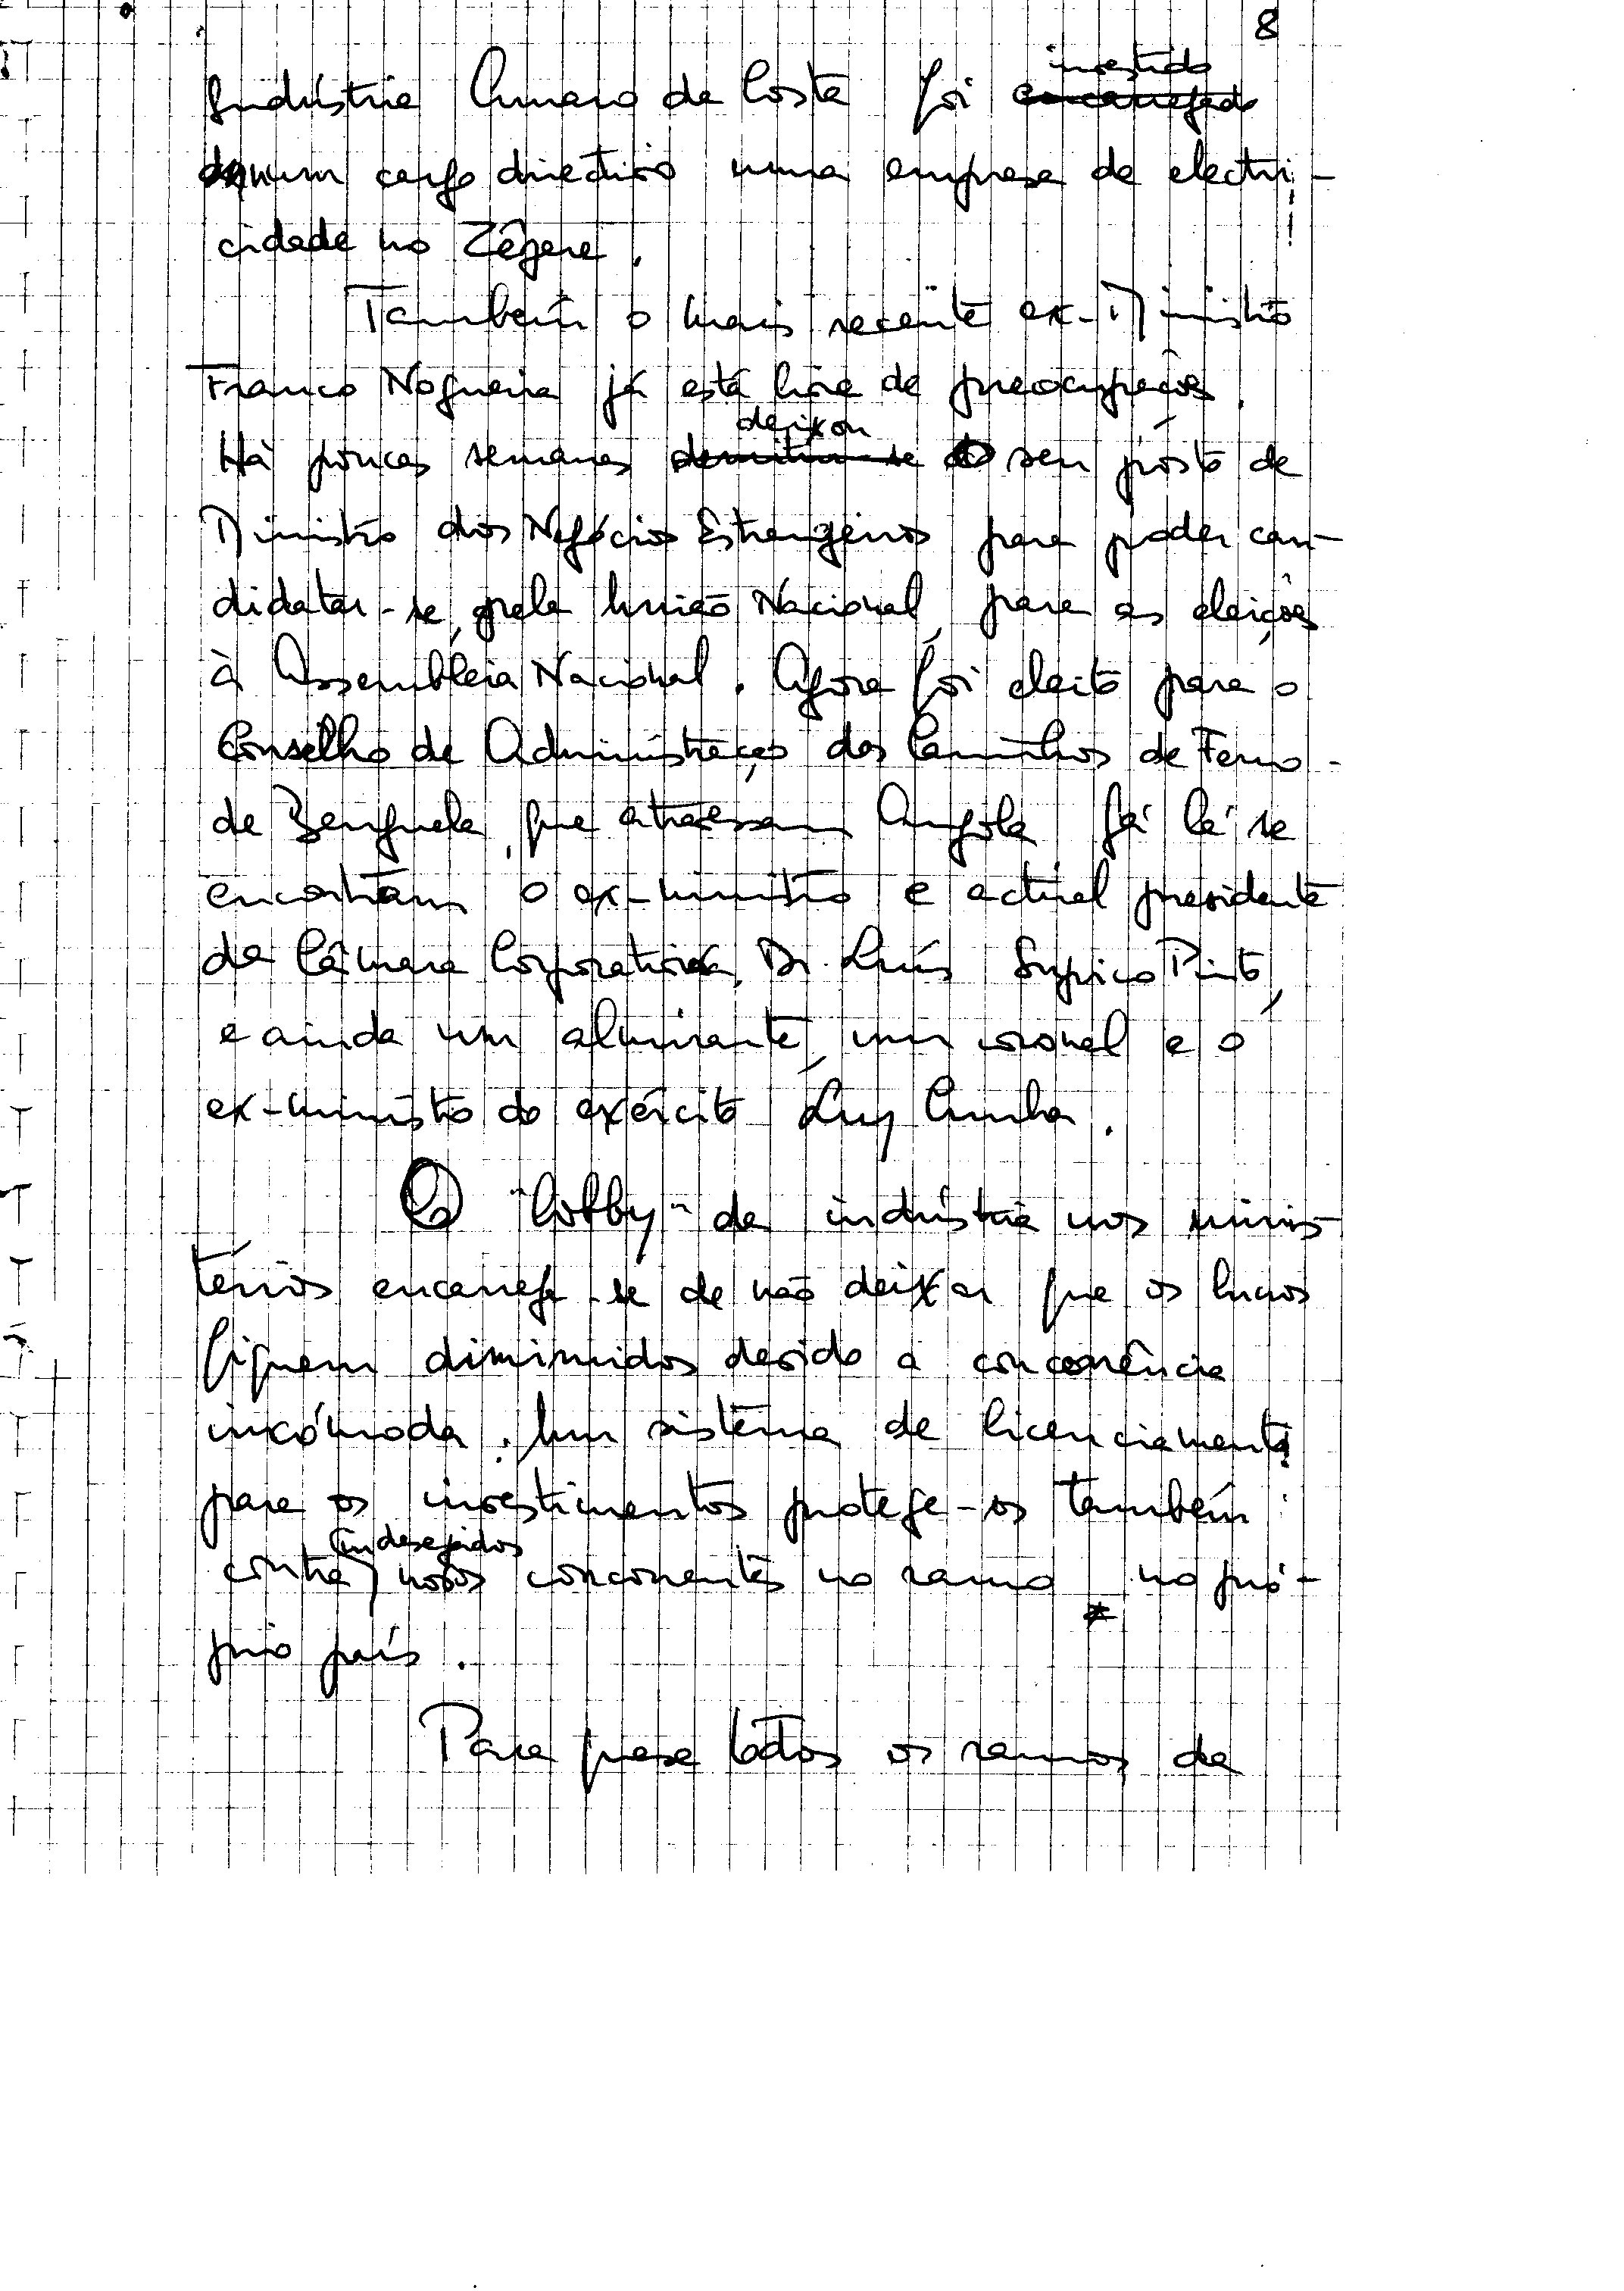 8
Indústria Amaro da Costa foi investido
dum cargo directivo numa empresa de electri-
cidade no Zêzere.
Também o mais recente ex-Ministro
Franco Nogueira já está livre de preocupações.
Há poucas semanas deixou o seu pôsto de
Ministro dos Negócios Estrangeiros para poder can-
didatar-se, pela União Nacional, para as eleições
à Assembleia Nacional. Agora foi eleito para o
Conselho de Administração dos Caminhos de Ferro
de Benguela, que atravessam Angola. Já lá se
encontram o ex-ministro e actual presidente
da Câmara Corporativa, Dr. Luís Supico Pinto,
e ainda um almirante, um coronel e o
ex-ministro do exército Luz Cunha.
O "lobby" da indústria nos minis-
térios encarrega-se de não deixar que os lucros
fiquem diminuidos devido a concorrência
incómoda. Um sistema de licenciamento
para os investimentos protege-os também
contra (indesejados) novos concorrentes no ramo no pró-
prio país.
Para quase todos os ramos da